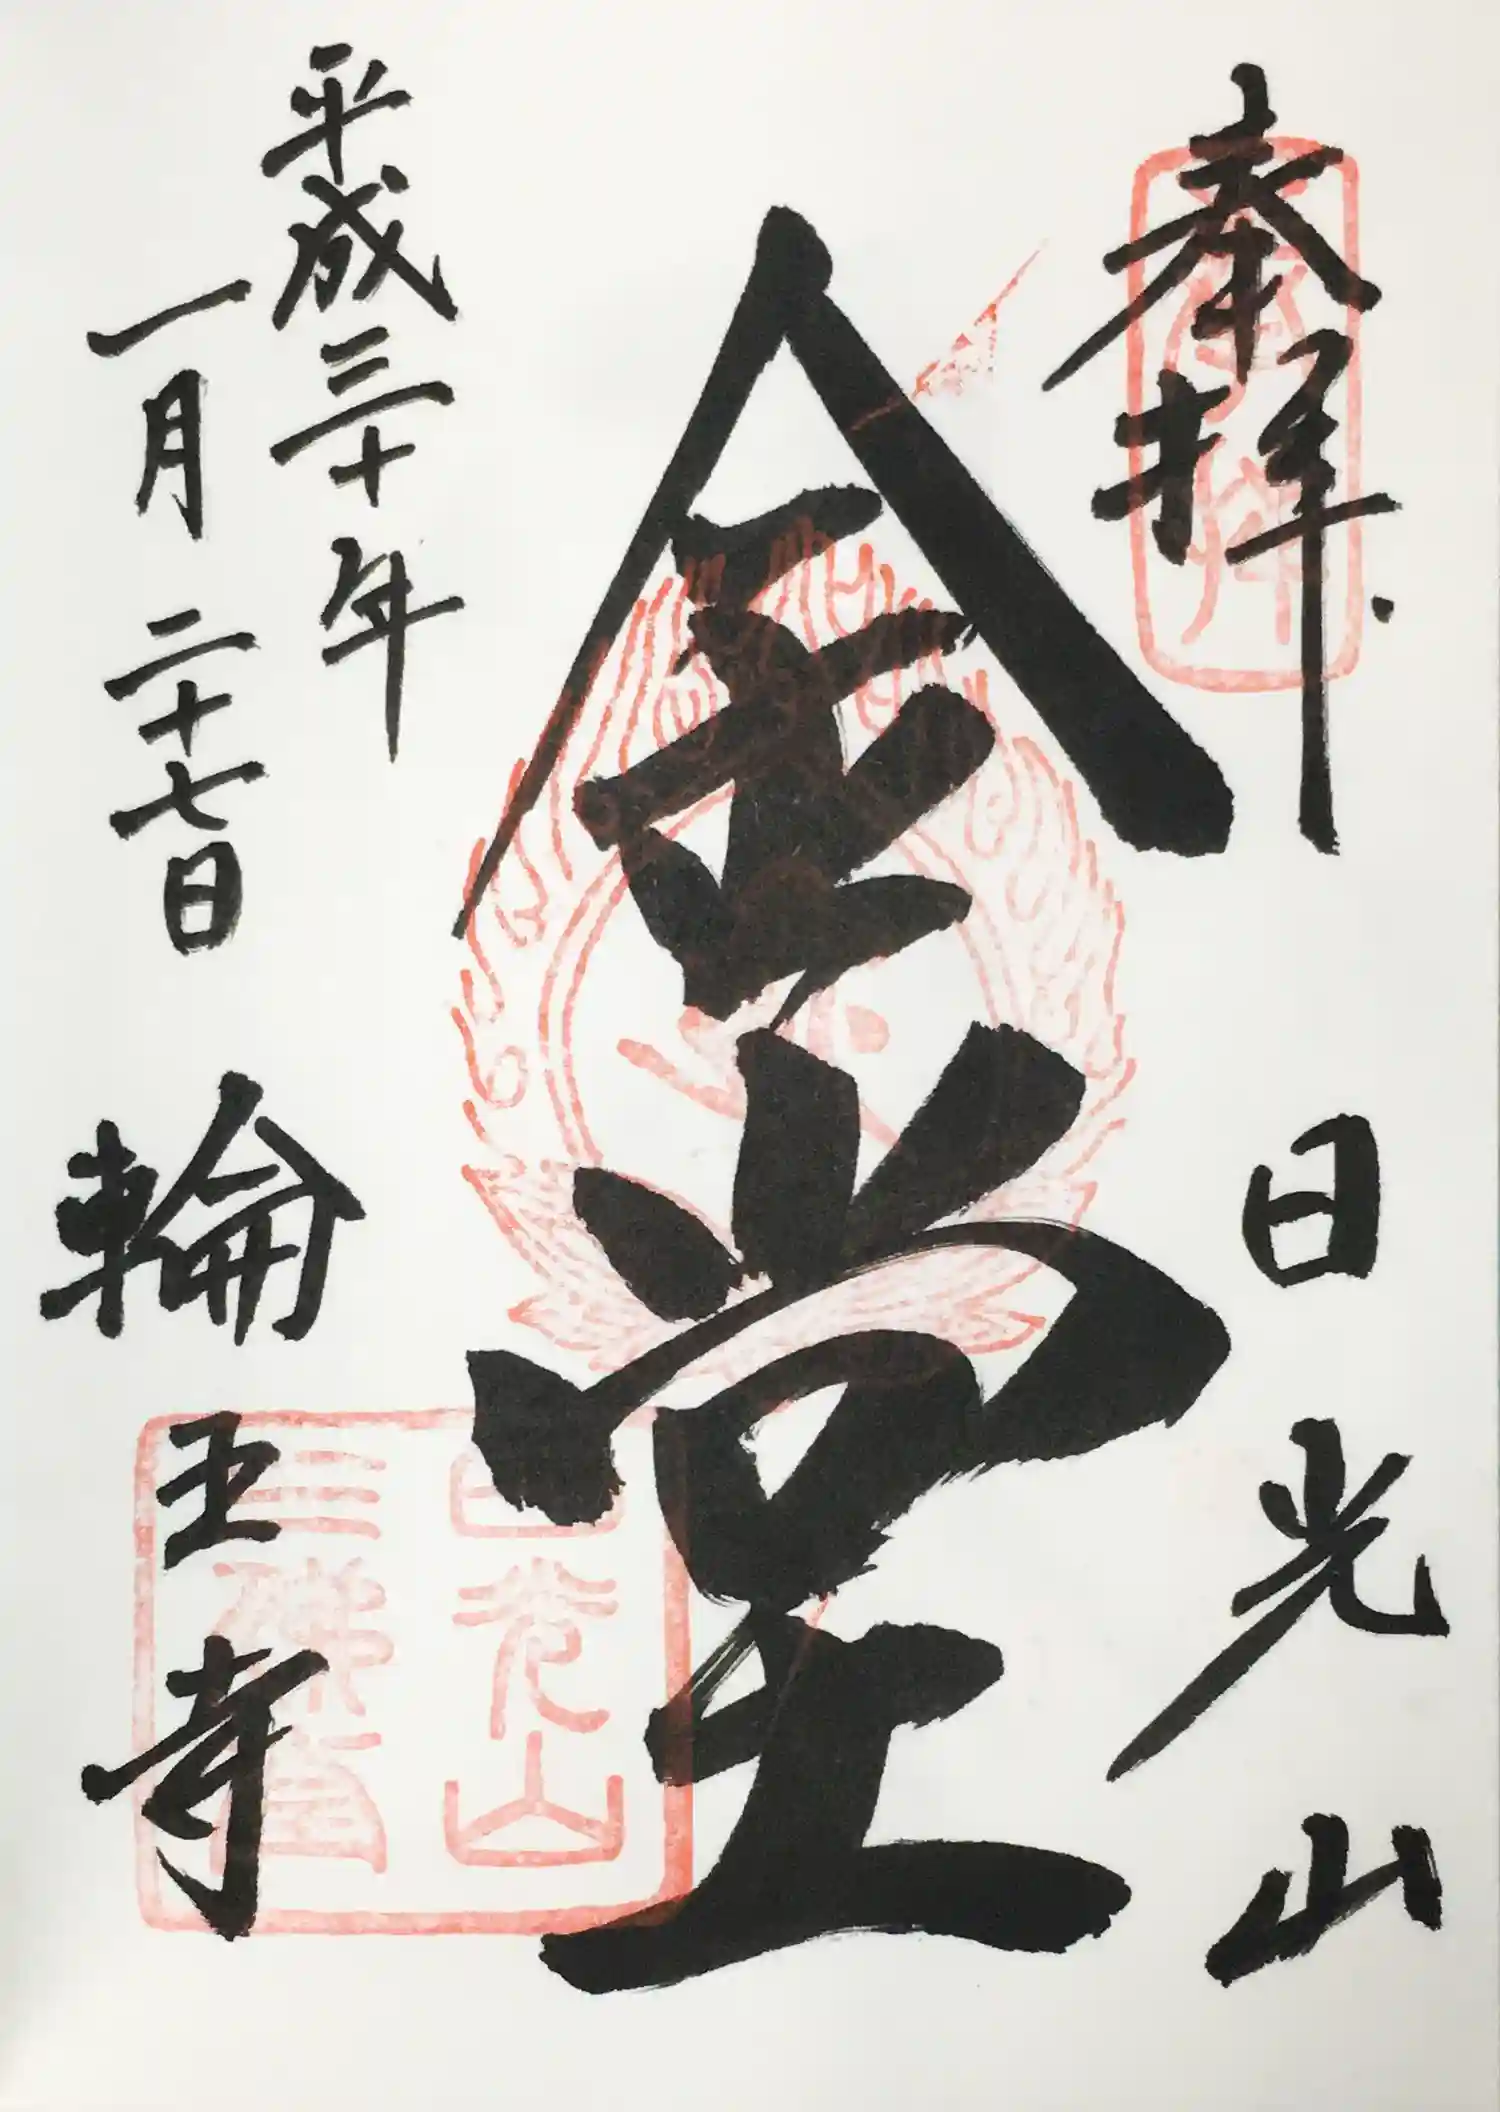 奉拝
日光山
金堂
平成三十年
一月二十七日
輪王寺
奉拝
日光山
三佛堂